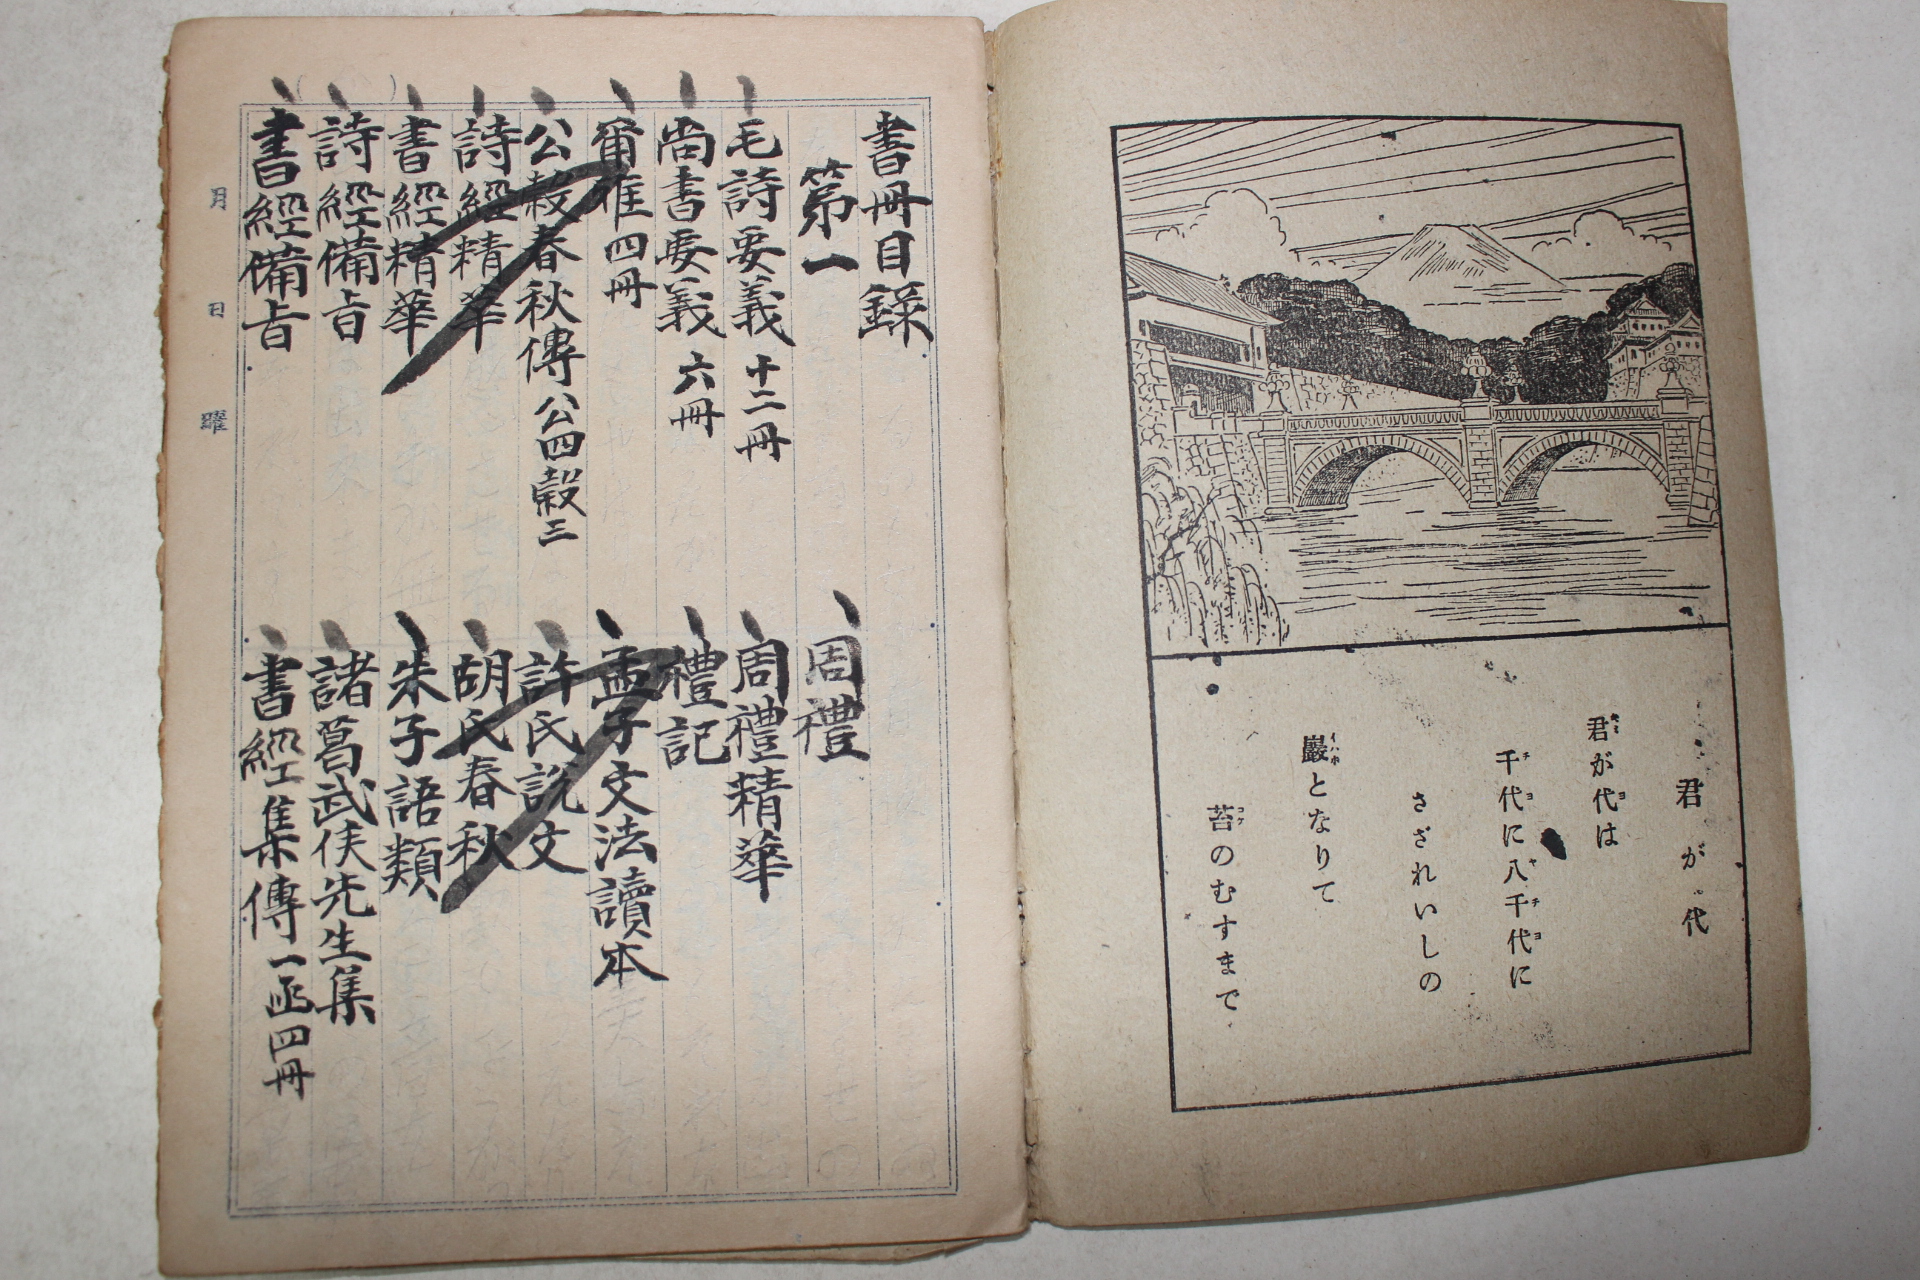 君が代
君が代は
千代に八千代に
さざれいしの
巖となりて
苔のむすまで
書冊目錄
第一
毛詩要義 十二冊
尚書要義 六冊
爾雅四冊
公穀春秋傳公四穀三
詩經精華
書經精華
詩經備旨
書經備旨
周禮
周禮精華
禮記
孟子文法讀本
許氏說文
胡氏春秋
朱子語類
諸葛武侯先生集
書經集傳一函四冊
月 日 曜